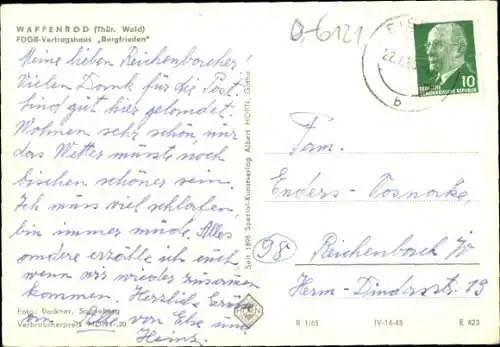 WAFFENROD (Thür. Wald)
FDGB-Vertragshaus „Bergfrieden"
Meine lieben Reichenbacher!
Vielen Dank für die Post.
Sind gut hier gelandet.
Wohnen sehr schön, nur
das Wetter müsste noch
bischen schöner sein.
Ich muss viel schlafen,
bin immer müde. Alles
andere erzähle ich euch
wenn wir wieder zusammen
kommen. Herzliche Grüße
an Alle von Else und
Heinz.
Foto: Dadner, Sonneberg
Verbraucherpreis MDN
Seit 1898 Spezial-Kunstverlag Albert HORN, Gotha
HORN
0-6121
EIS
22.
b
DEUTSCHE
DEMOKRATISCHE REPUBLIK
10
Fam.
Enders-Posnarke,
98
Reichenbach i/V
Herm-Dindas-Str. 19
R 1/65
IV-14-45
E 423